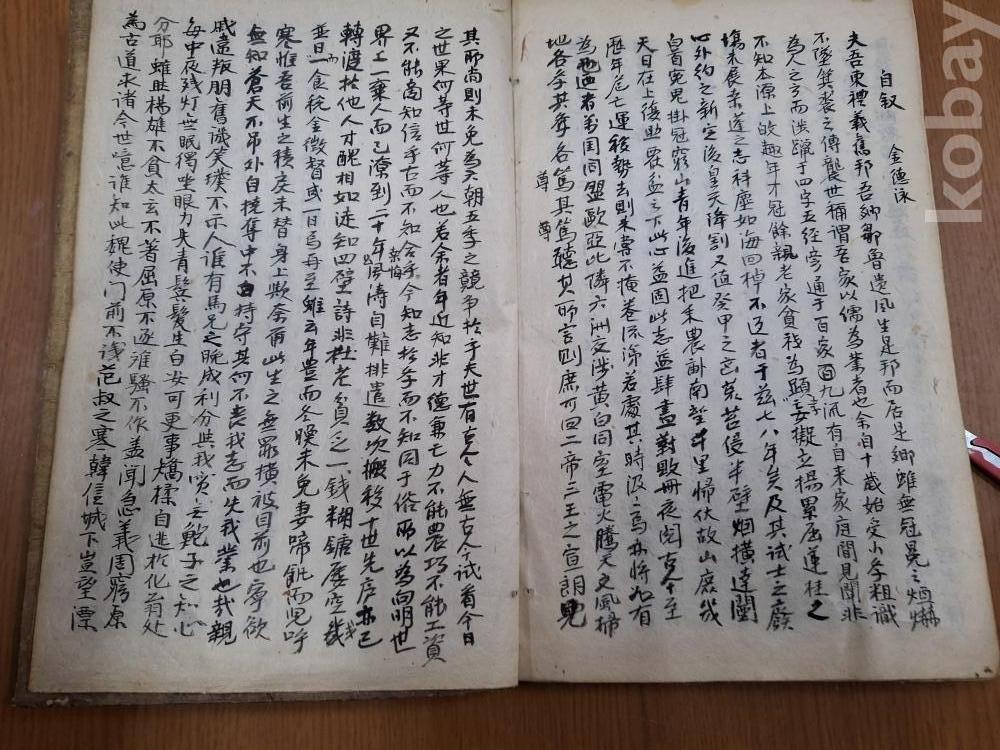 自叙
金德泳
夫吾東禮義舊邦吾鄉鄒魯遺風生是邦而居是鄉雖無冠冕之烜爀
不墜箕裘之傳襲世稱謂吾家以儒為業者也余自十歲始受小學粗識
為人之方而涉獵于四字五經旁通于百家百九流有自来家庭間見聞非
不知本源上做趣年才冠餘親老家貧我為顯孝妄擬立揚累屈蓮桂之
場未展榮達之志科塵如海回棹不返者于茲七八年矣及其試士之廢
心外約之新定後皇天降割又值癸甲之荐苫侵半壁烟橫達闉
白首宛兕掛冠窮山青年後進把耒農訓南望千里帰伏故山庶我
天日在上後助農益之下此心益固此志益肆晝對敗冊夜閱古人至
歷年危亡運移勢去則未嘗不掩卷流涕若處其時汲ミ焉亦將如有
為也迺者萬国同盟歐亞比隣六洲交涉黃白同室電火騰天文風掃
地各學其學各篤其篤聽其所言則庶可回二帝三王之宣朗見
尊 尊
其所尚則未免為天朝五季之競争於乎夫世有古今人無古今試看今日
之世果何等世何等人也若余者年近知非才德兼亡力不能農巧不能工資
又不能商知信乎古而不知合乎今知志於學而不知同于俗所以為向明世
界上一棄人而已漂到二十年風濤自難排遣數次搬移十世先庄亦已
轉渡於他人才醜相如徒知四壁詩非杜老貧乏一錢糊鏣屡空幾
並日一食稅金徵督或一日而再至雖云年豊而冬暖未免妻啼飢而児呼
寒惟吾前生之積戾未替身上欺余爾此生之無罪橫被目前也寧欲
無知蒼天不吊外自撓奪中不自持守其何不喪我志而失我業也哉親
戚薄叛朋舊譏笑璞不示人誰有馬兄之晚成利分與我實無鮑子之知心
每中夜殘灯尘眠獨坐眼力失青鬂髮生白安可更事矯揉自逃於化翁处
分耶雖無楊雄不貧太玄不著屈原不逐離騷不作盖聞急義周窮原
為古道求諸今世噫誰知此魏使門前不浅范叔之寒韓信城下豈望漂